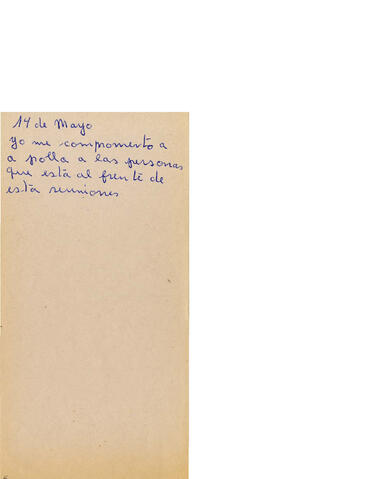 14 de Mayo
yo me compomento a
a polla a las personas
que está al frente de
está reuniones